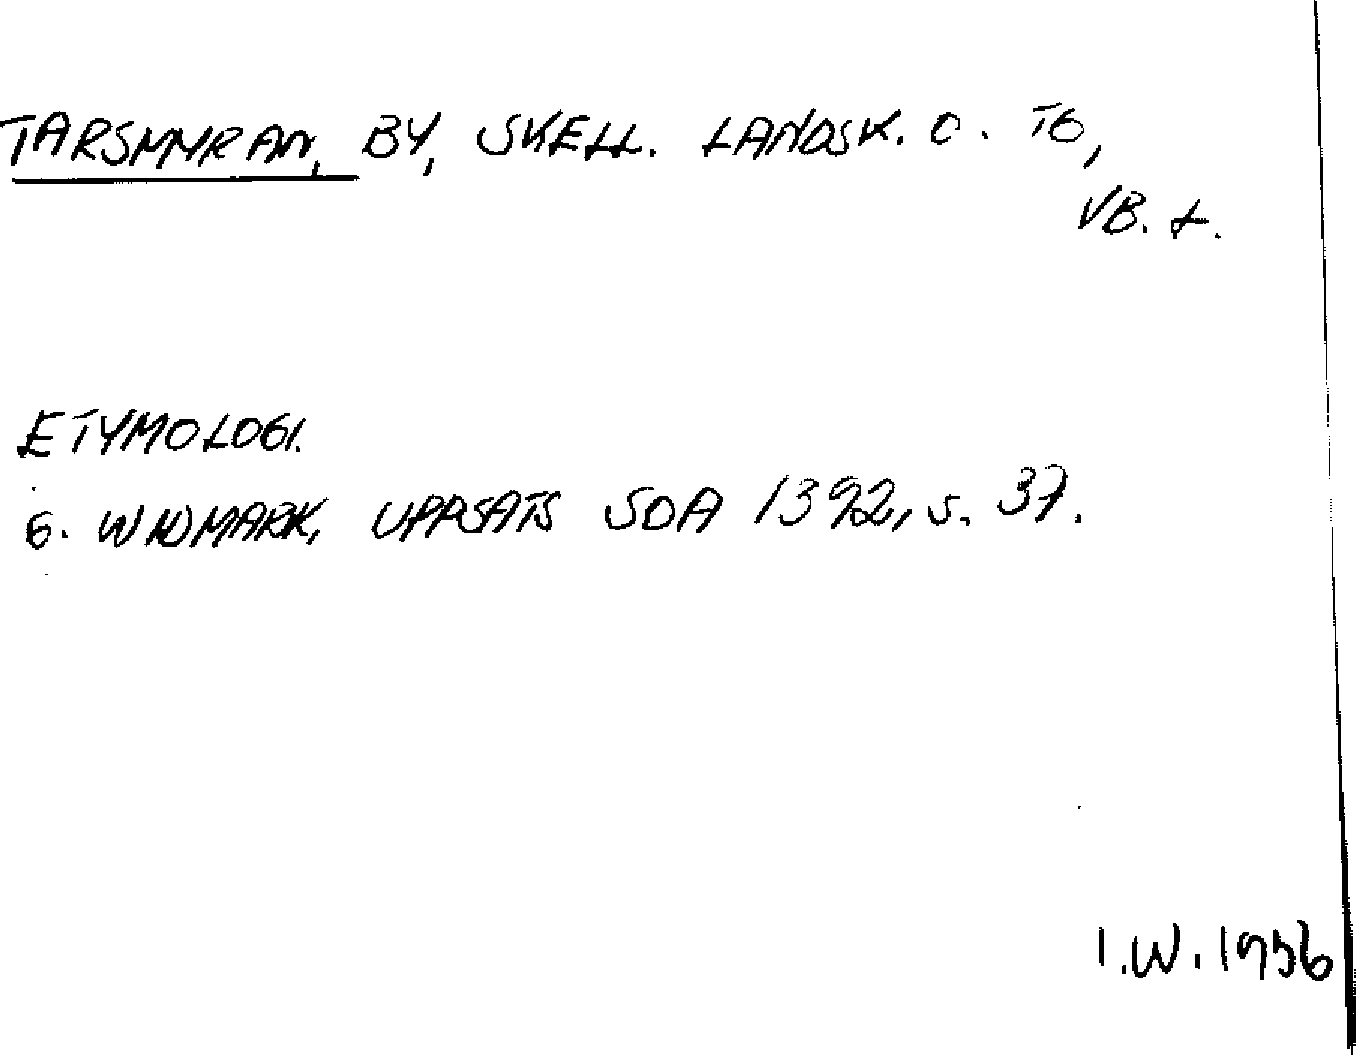 TARSMYRAN, BY, SKELL. LANDSK. O. TG,
VB. L.
ETYMOLOGI.
G. WIDMARK, UPPSATS SOA 1392, S. 37.
I.W. 1956